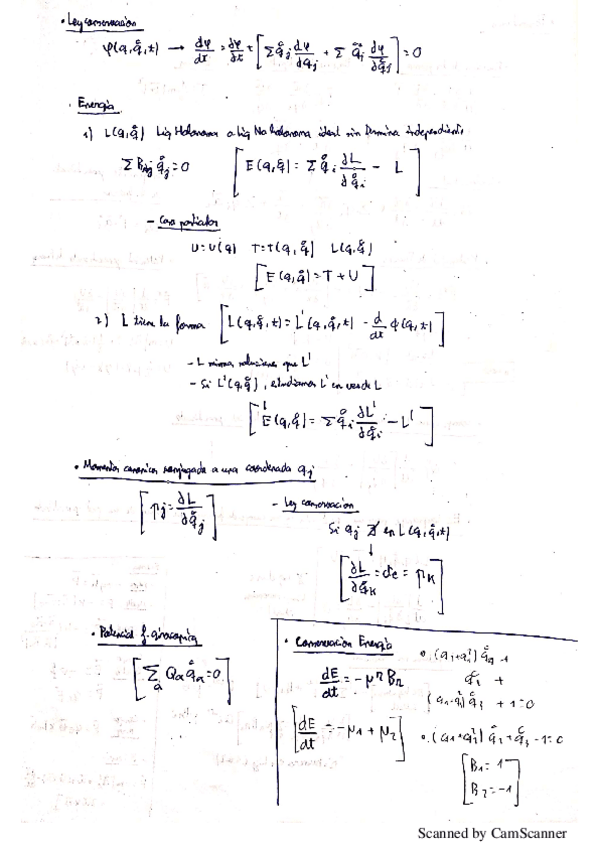 • Ley conservacion
φ(q,q̊,t) → dφ/dt = ∂φ/∂t + [Σ q̊j dφ/dqj + Σ q̊̊j dφ/dq̊j] = 0
• Energía
1) L(q,q̊) Lig Holonoma o Lig No holonoma ideal sin termino independiente
Σ Bnj q̊j = 0 [E(q,q̊) = Σ q̊i ∂L/∂q̊i - L]
- Caso particular
U = U(q) T = T(q,q̊) L(q,q̊)
[E(q,q̊) = T + U]
2) L tiene la forma [L(q,q̊,t) = L'(q,q̊,t) - d/dt φ(q,t)]
- L misma soluciones que L'
- Si L'(q,q̊), estudiamos L' en vez de L
[E'(q,q̊) = Σ q̊i ∂L'/∂q̊i - L']
• Momento canonico conjugado a una coordenada qj
[pj = ∂L/∂q̊j]
- Ley conservacion
Si qj ∄ en L(q,q̊,t)
↓
[∂L/∂q̊k = cte = pk]
• Potencial f. giroscopica
[Σa Qa q̊a = 0]
• Conservacion Energía
dE/dt = -μⁿ Bn
[dE/dt = -μ1 + μ2]
q̊2 +
+ 1 = 0
[B1 = 1
B2 = -1]
Scanned by CamScanner